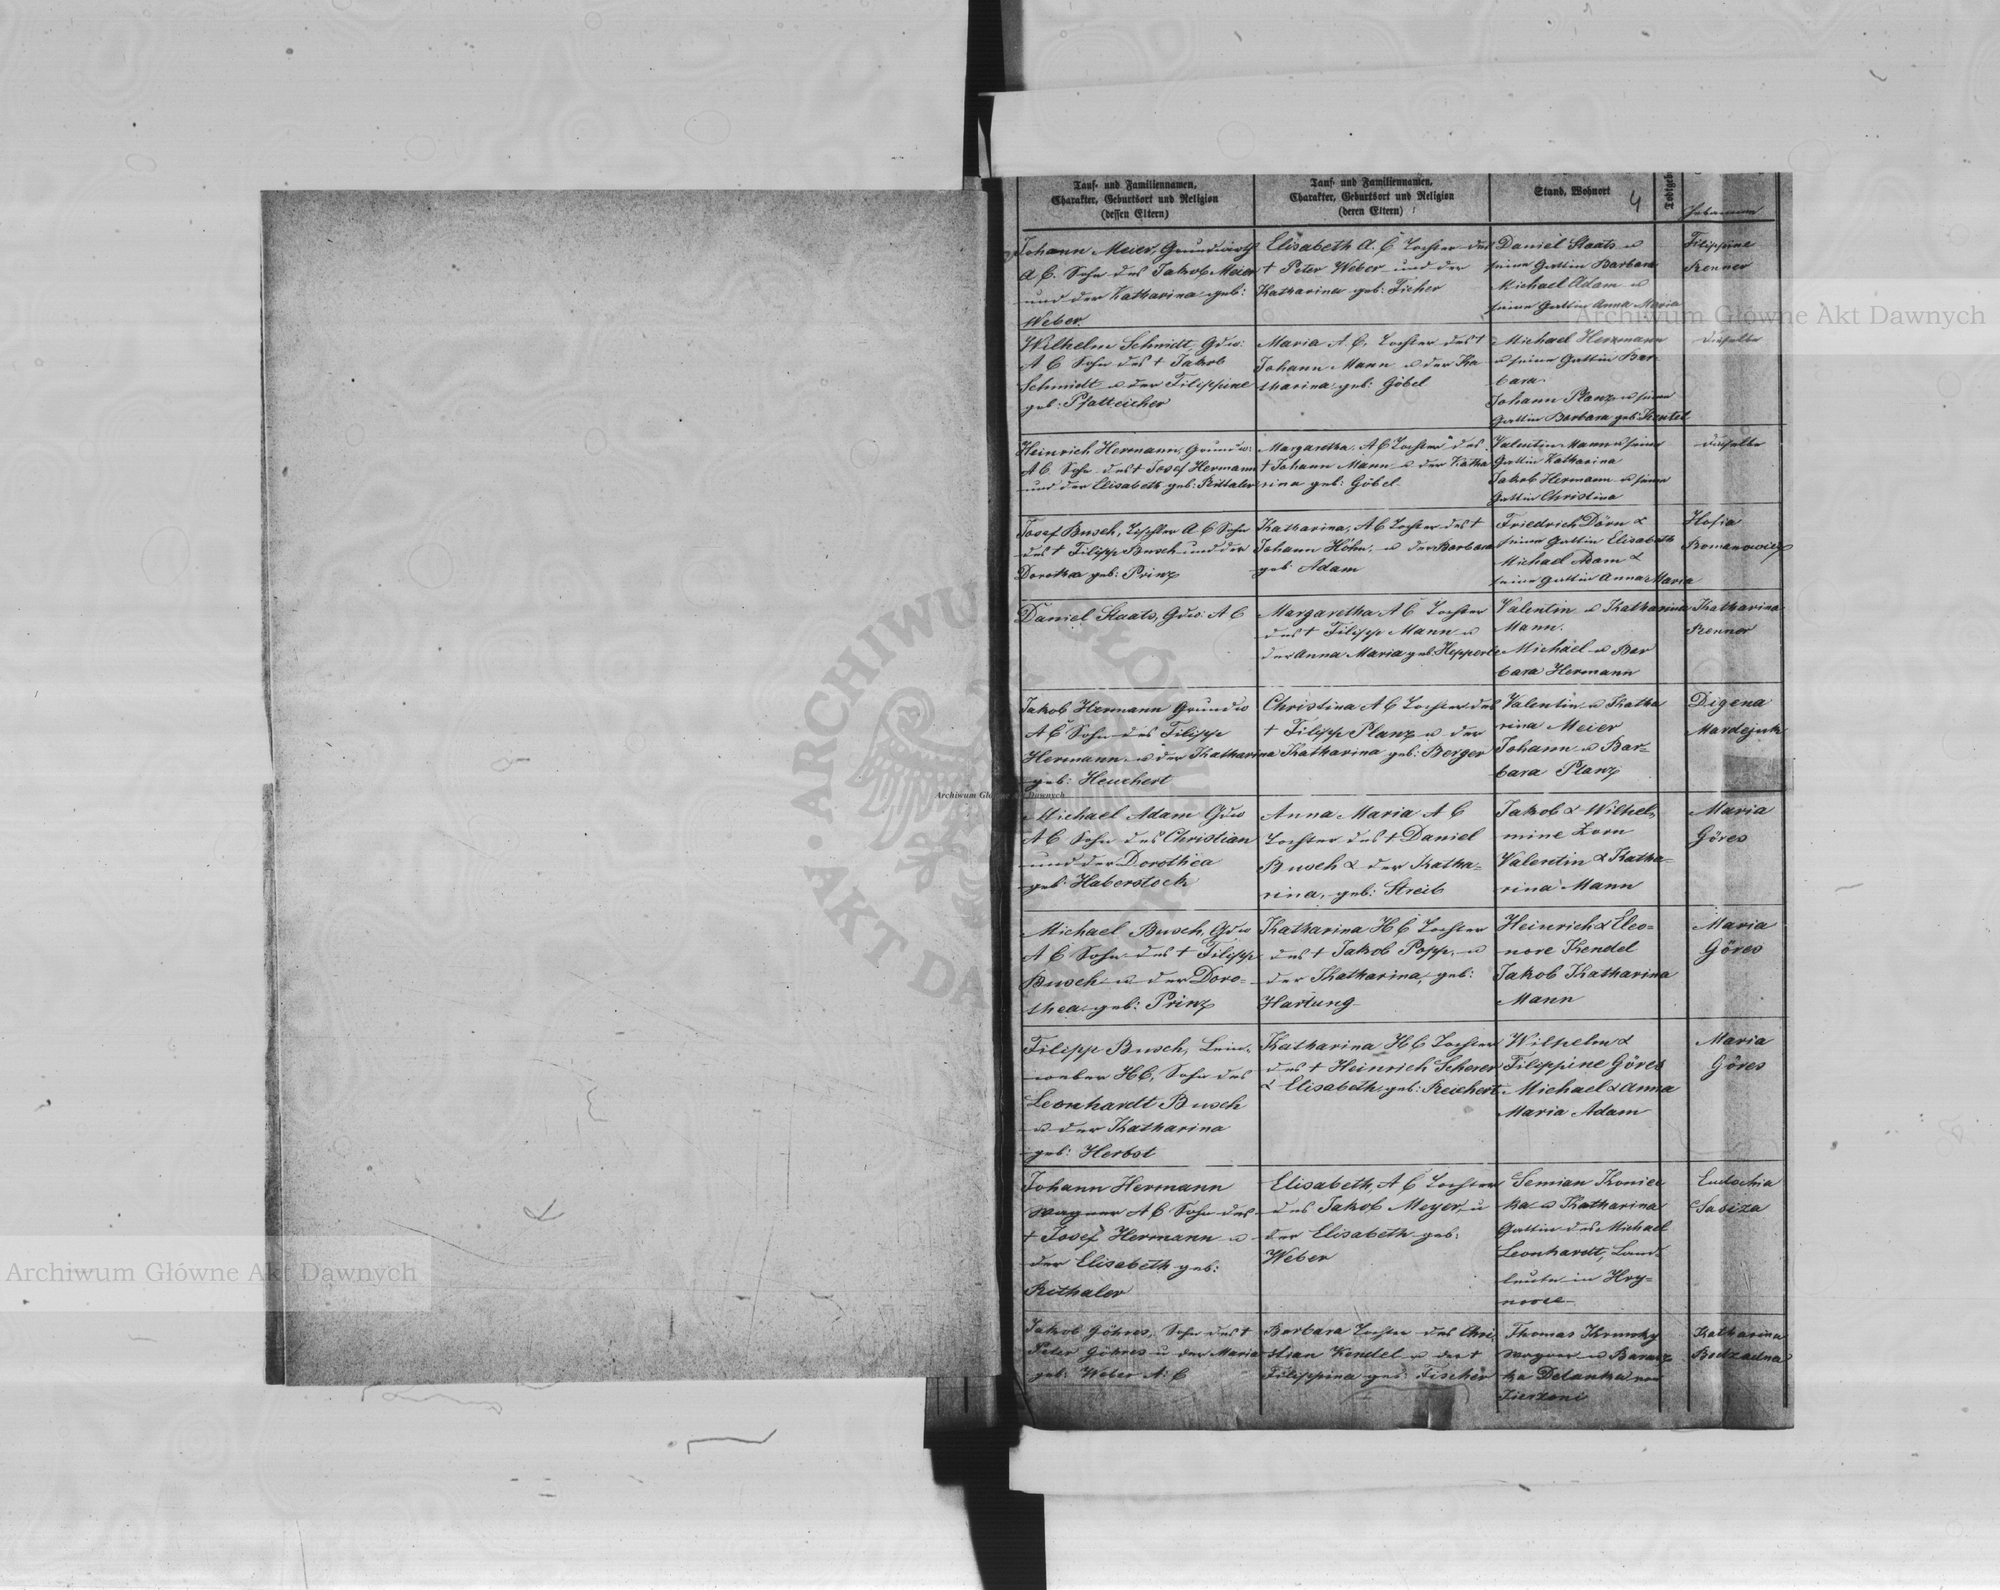 Tauf- und Familiennamen,
Charakter, Geburtsort und Religion
(dessen Eltern)
Tauf- und Familiennamen,
Charakter, Geburtsort und Religion
(deren Eltern)
Stand, Wohnort
4
Todtgeb
Hebamme
Johann Meier, Grundwirth
A C. Sohn des Jakob Meier
und der Katharina geb:
Weber.
Elisabeth A. C Tochter des
† Peter Weber und der
Katharina geb: Ficher
Daniel Staats u
seine Gattin Barbara
Michael Adam u
seine Gattin Anna Maria
Filippine
Renner
Wilhelm Schmidt, Gdw:
A C Sohn des † Jakob
Schmidt u der Filippine
geb: Pfatteicher
Maria A C. Tochter des †
Johann Mann u der Ka
tharina geb: Göbel
Michael Herrmann
u seine Gattin Bar
bara.
Johann Planz u seine
Gattin Barbara geb: Kentel
dieselbe
Heinrich Hermann, Grundw:
A C. Sohn des † Josef Hermann
und der Elisabeth geb: Rittaler
Margaretha. A C Tochter des
† Johann Mann u der Katha
rina geb: Göbel.
Valentin Mann u seine
Gattin Katharina
Jakob Hermann u seine
Gattin Christina
dieselbe
Josef Busch, Tischler A C Sohn
des † Filipp Busch und der
Dorothea geb: Prinz
Katharina, A C Tochter des †
Johann Höhn, u der Barbara
geb Adam
Friedrich Dörn &
seine Gattin Elisabeth
Michael Adam &
seine Gattin Anna Maria
Hosia
Romanowicz
Daniel Staats, Gdw. A C
Margaretha A C Tochter
des † Filipp Mann u
der Anna Maria geb: Hepperle
Valentin u Katharina
Mann.
Michael u Bar
bara Hermann
Katharina
Renner
Jakob Hermann Grundw
A C Sohn des Filipp
Hermann u der Katharina
geb: Heuchert
Christina A C Tochter des
† Filipp Planz u der
Katharina geb: Berger
Valentin u Katha
rina Meier
Johann u Bar-
bara Planz
Digena
Mardejuk
Michael Adam Gdw
A C Sohn des Christian
und der Dorothea
geb: Haberstock
Anna Maria A C
Tochter des † Daniel
Busch & der Katha-
rina, geb: Streib
Jakob & Wilhel-
mine Zorn
Valentin & Katha-
rina Mann
Maria
Göres
Michael Busch, Gdw
A C Sohn des † Filipp
Busch u der Doro-
thea geb: Prinz
Katharina H C Tochter
des † Jakob Popp, u
der Katharina, geb:
Hartung
Heinrich & Eleo-
nore Kendel
Jakob Katharina
Mann
Maria
Göres
Filipp Busch, Lein-
weber H C, Sohn des
Leonhardt Busch
u der Katharina
geb: Herbst
Katharina H C Tochter
des † Heinrich Scherer
& Elisabeth geb: Reichert
Wilhelm &
Filippine Göres
Michael & Anna
Maria Adam
Maria
Göres
Johann Hermann
Wagner A C Sohn des
† Josef Hermann u
der Elisabeth geb:
Rithaler
Elisabeth, A C Tochter
des Jakob Meyer, u
der Elisabeth geb:
Weber
Semian Koniec
ka u Katharina
Gattin des Michael
Leonhardt, Land-
leute in Hry-
Eudochia
Sabiza
Jakob Göhres, Sohn des †
Peter Göhres u der Maria
geb: Weber A. C
Barbara Tochter des Chri
stian Kendel u der †
Filippina geb: Fischer
Thomas Krinsky
Wagner u Baranz
ka Delanka von
Katharina
Bodzadna
Archiwum Główne Akt Dawnych
Archiwum Główne Akt Dawnych
Archiwum Główne Akt Dawnych
ARCHIWUM GŁÓWNE AKT DAWNYCH